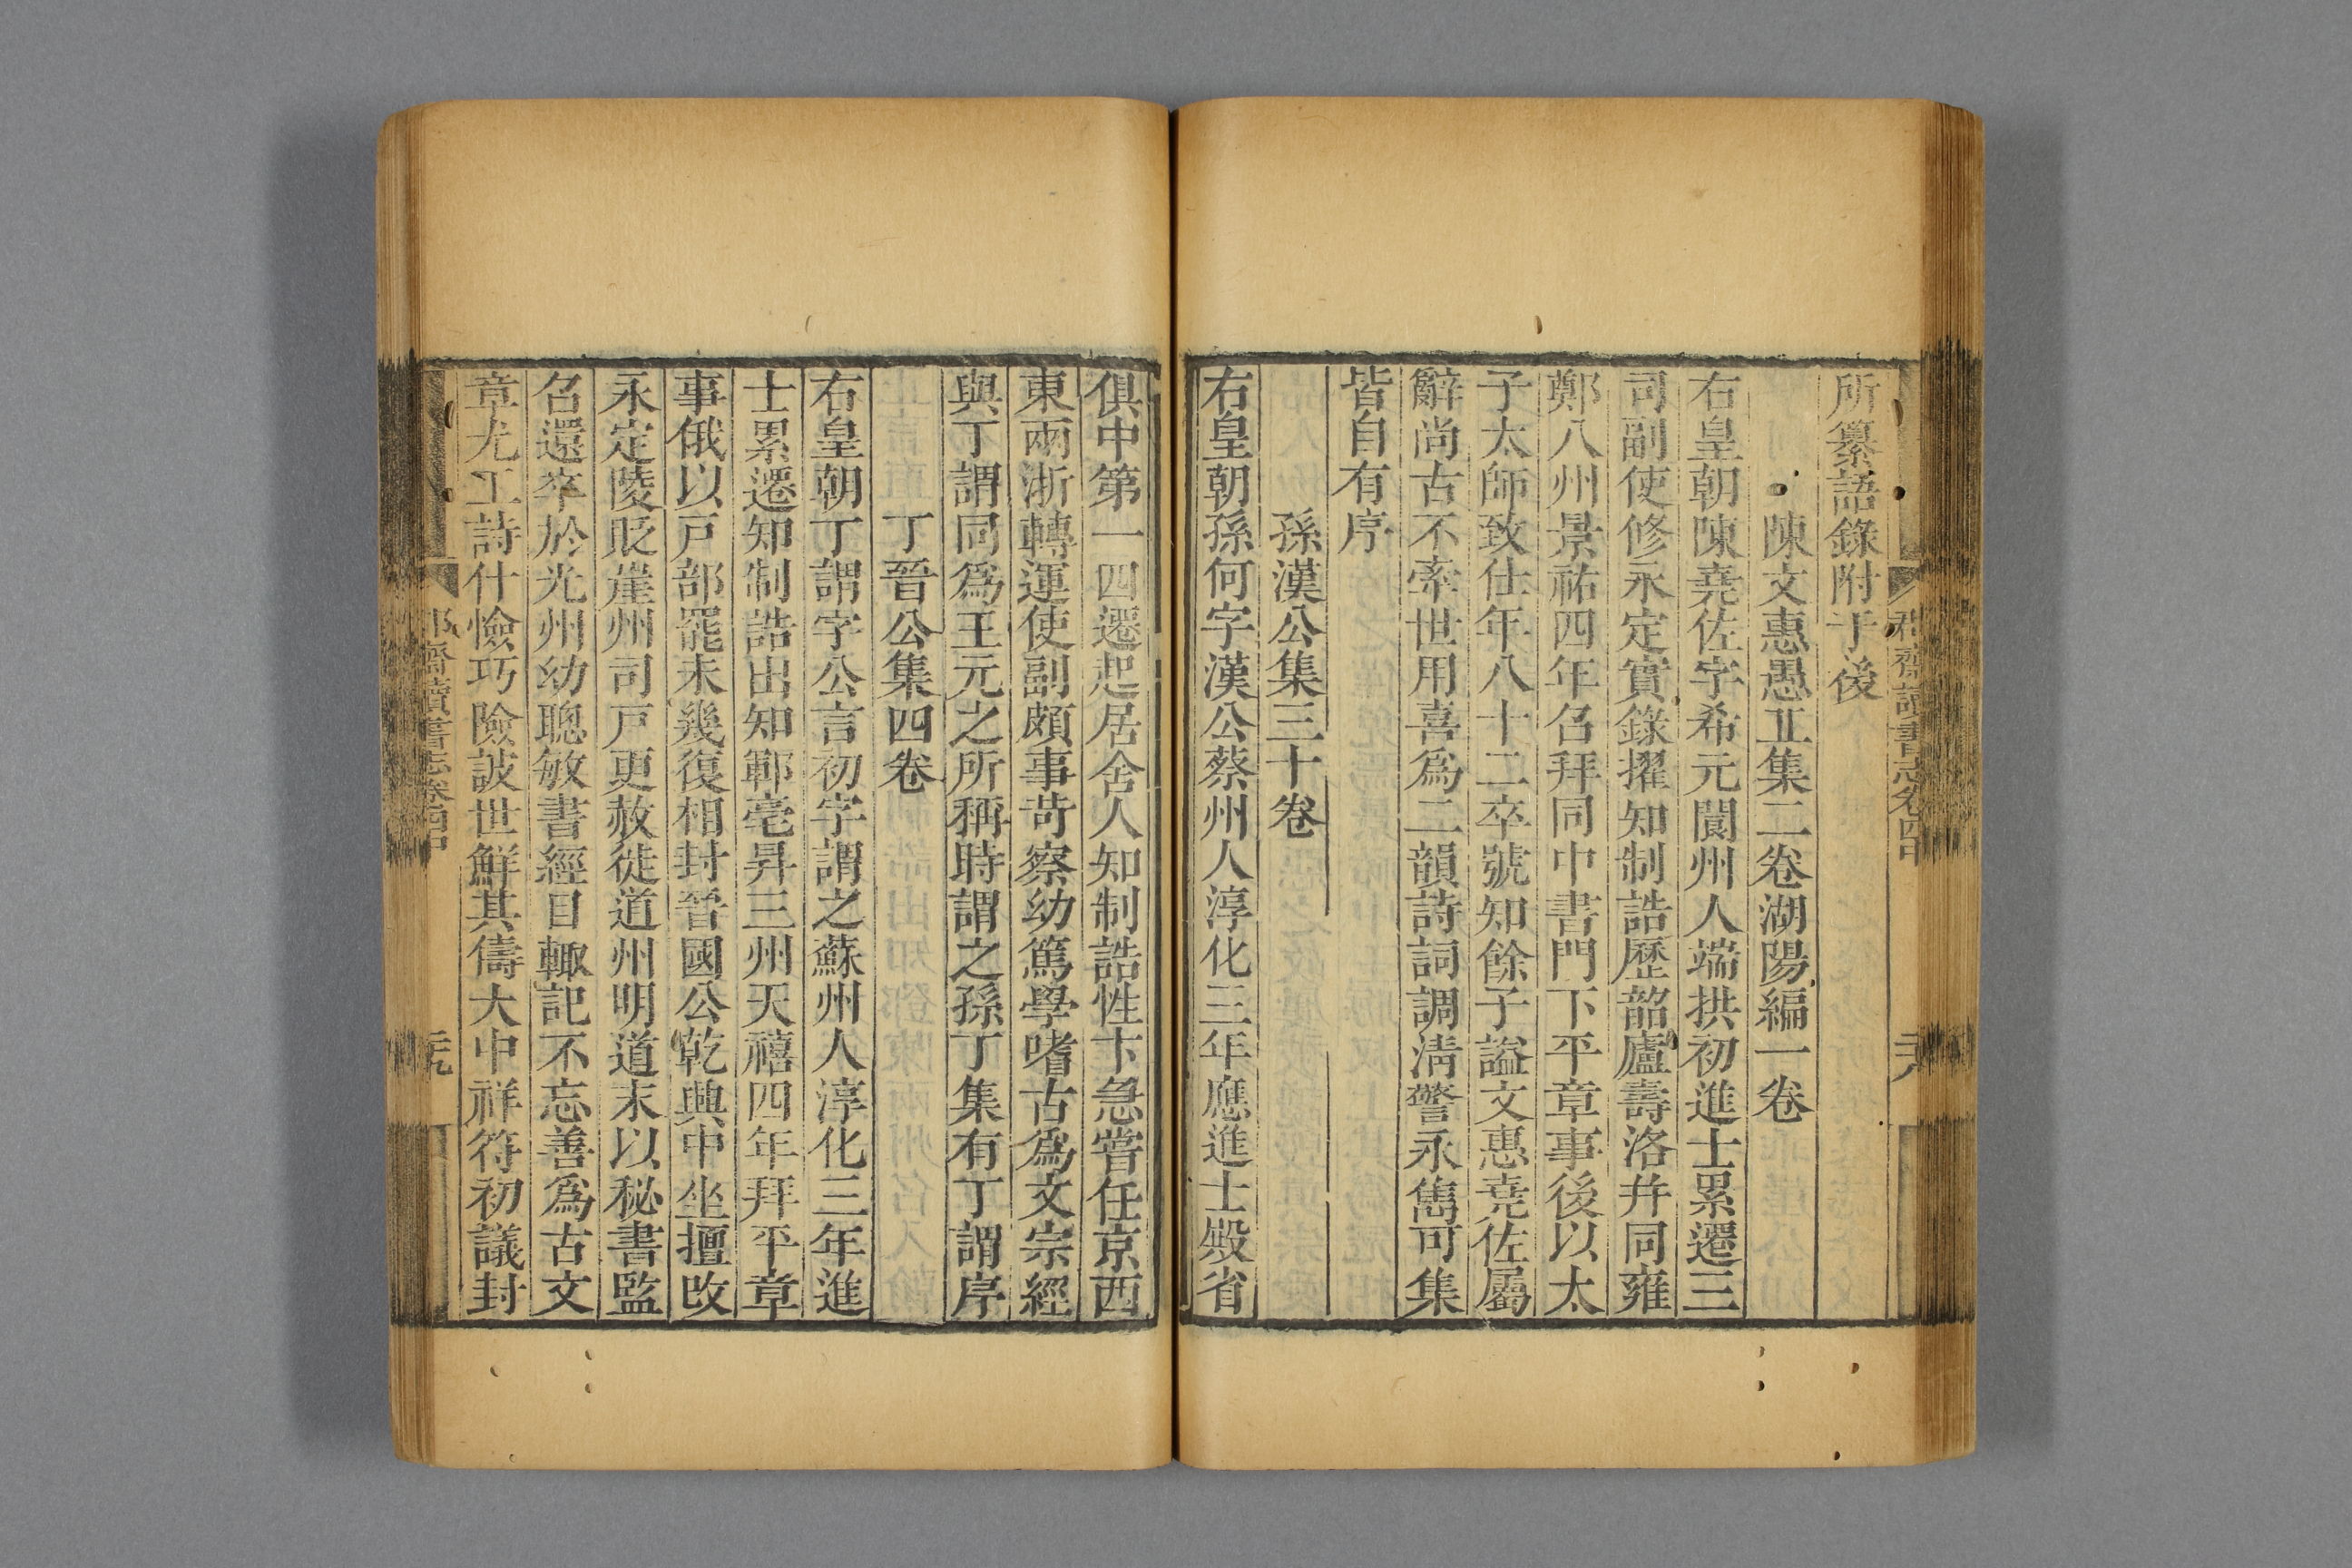 所纂語錄附于後
陳文惠愚丘集二卷湖陽編一卷
右皇朝陳堯佐字希元閬州人端拱初進士累遷三
司副使修永定實錄擢知制誥歷韶廬壽洛并同雍
鄭八州景祐四年召拜同中書門下平章事後以太
子太師致仕年八十二卒號知餘子謚文惠堯佐屬
辭尚古不牽世用喜爲二韻詩詞調淸警永雋可集
皆自有序
孫漢公集三十卷
右皇朝孫何字漢公蔡州人淳化三年應進士殿省
俱中第一四遷起居舍人知制誥性卞急嘗任京西
東兩浙轉運使副頗事苛察幼篤學嗜古爲文宗經
與丁謂同爲王元之所稱時謂之孫丁集有丁謂序
丁晉公集四卷
右皇朝丁謂字公言初字謂之蘇州人淳化三年進
士累遷知制誥出知鄆亳昇三州天禧四年拜平章
事俄以戸部罷未幾復相封晉國公乾興中坐擅改
永定陵貶崖州司戸更赦徙道州明道末以秘書監
召還卒於光州幼聰敏書經目輙記不忘善爲古文
章尤工詩什憸巧險詖世鮮其儔大中祥符初議封